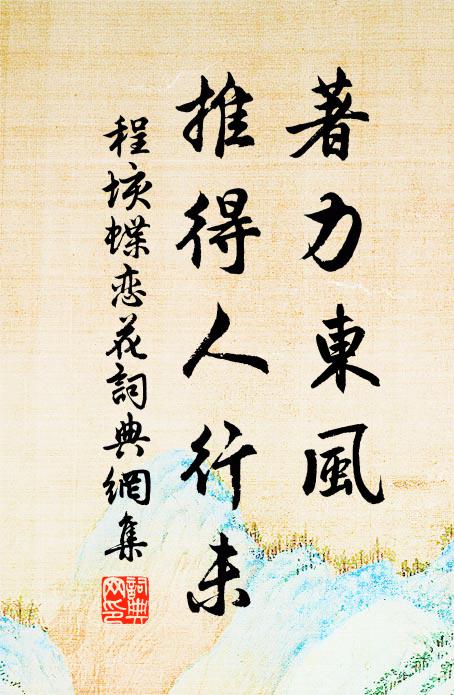 著力東風
推得人行未
程垓蝶恋花詞典網集
詞典
网印